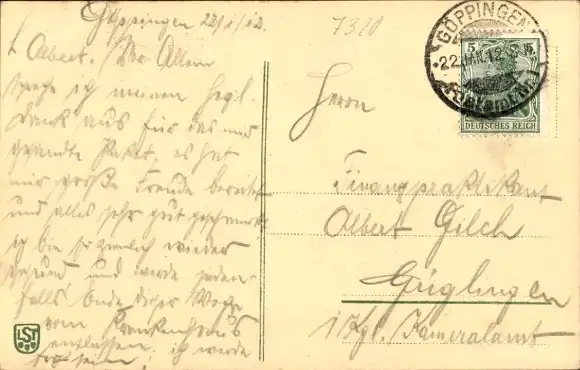 Göppingen 22/1/12.
L. Albert! Vor Allem
spreche ich meinen herzl.
Dank aus für das mir
gesandte Paket, es hat
mir große Freude bereitet
und alles sehr gut geschmeckt
ich bin so ziemlich wieder
gesund und werde jeden-
falls Ende dieser Woche
vom Krankenhaus
entlassen, ich werde
sein.
LST
7320
GÖPPINGEN
22. JAN. 12
5
DEUTSCHES REICH
Herrn
Finanzpraktikant
Albert Gilch
Güglingen
Kgl. Kameralamt